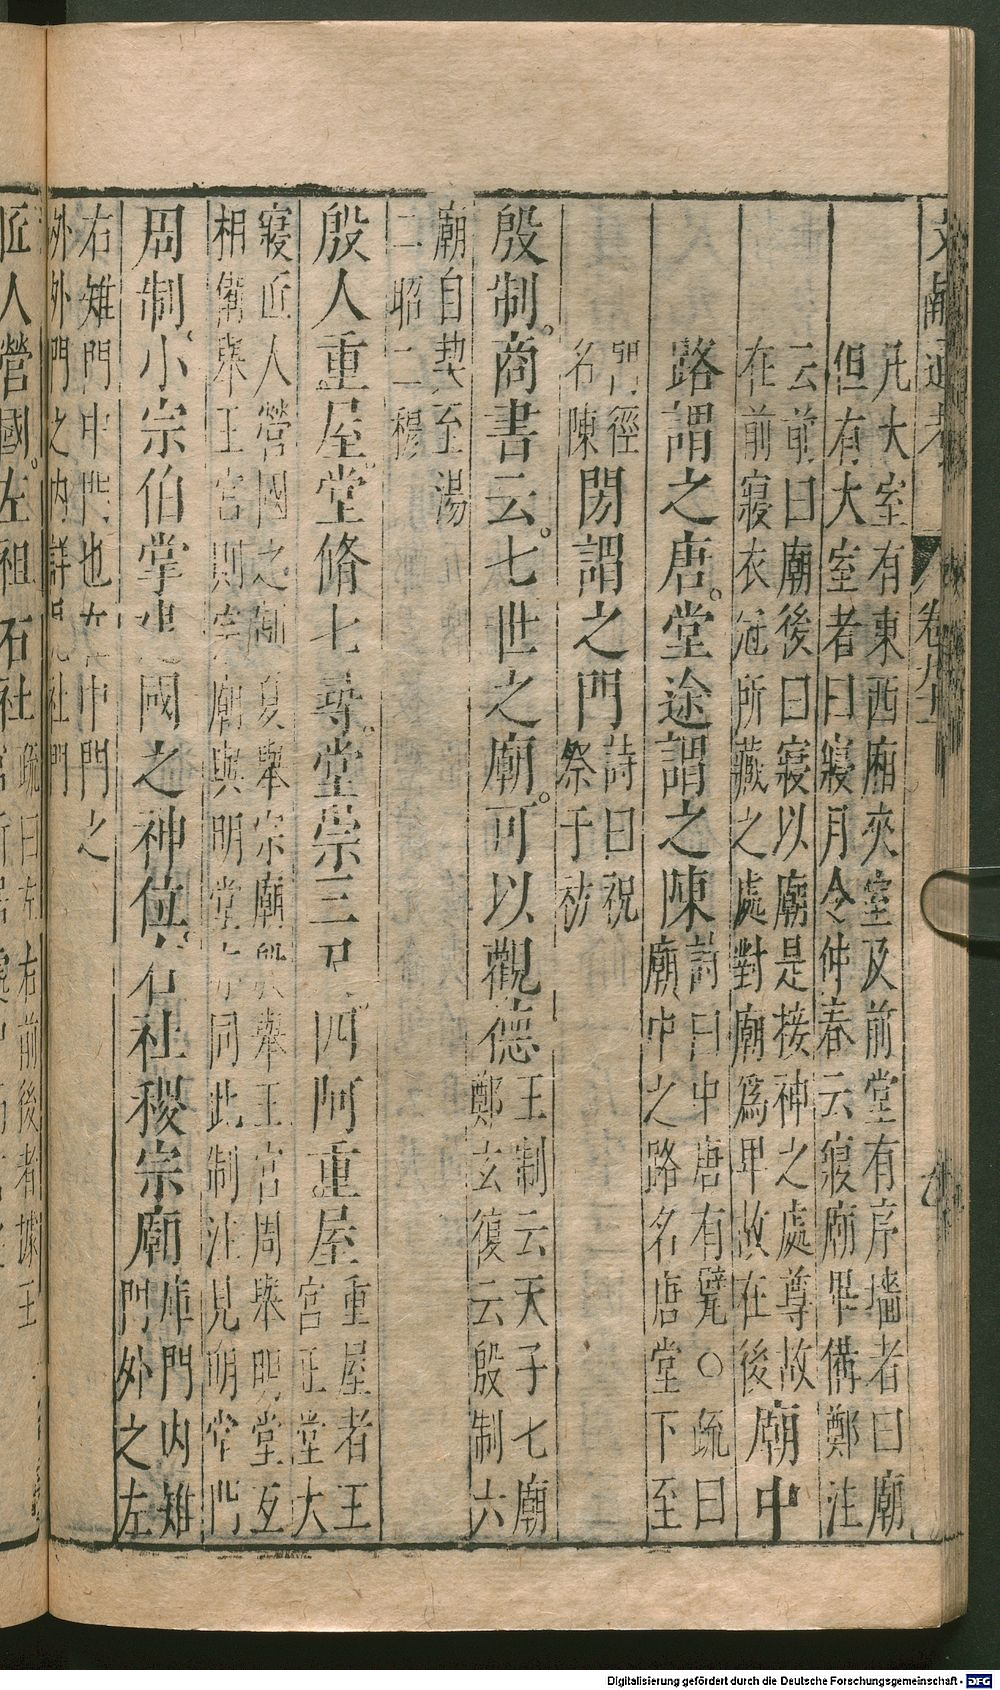 文獻通考 卷九十
凡大室有東西廂夾室及前堂有序墻者曰廟
但有大室者曰寢月令仲春云寢廟畢備鄭注
云前曰廟後曰寢以廟是接神之處尊故
在前寢衣冠所藏之處對廟爲卑故在後
廟中
路謂之唐堂途謂之陳
詩曰中唐有甓○疏曰
廟中之路名唐堂下至
門徑
名陳
閍謂之門
詩曰祝
祭于祊
殷制商書云七世之廟可以觀德
王制云天子七廟
鄭玄復云殷制六
廟自契至湯
二昭二穆
殷人重屋堂脩七尋堂崇三尺四阿重屋
重屋者王
宮正堂大
寢匠人營國之制夏舉宗廟殷舉王宮周舉明堂互
相備舉王宮則宗廟與明堂亦同此制注見明堂門
周制小宗伯掌建國之神位右社稷宗廟
庫門内雉
門外之左
右雉門中門也在中門之
外外門之内詳見社門
匠人營國左祖右社
疏曰左右前後者據王
宮所居處中而言之
Digitalisierung gefördert durch die Deutsche Forschungsgemeinschaft - DFG